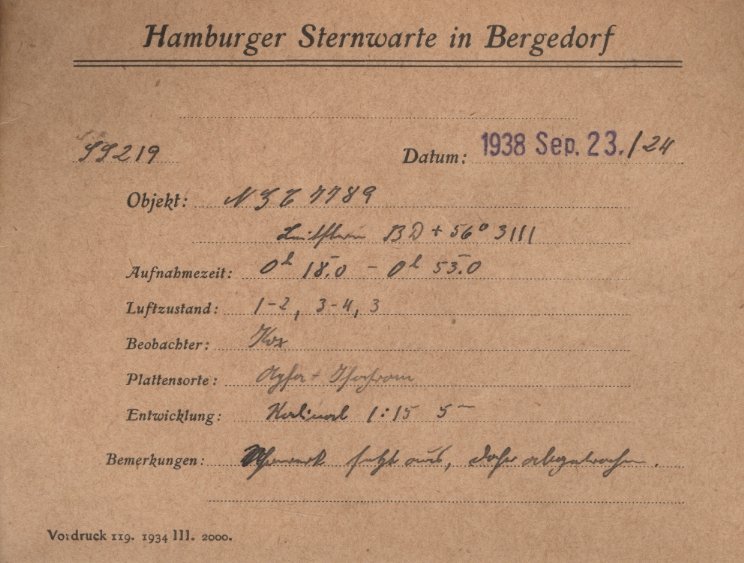 Hamburger Sternwarte in Bergedorf
SS219 Datum: 1938 Sep. 23./24
Objekt: NGC 7789
Leitstern BD + 56° 3111
Aufnahmezeit: 0h 18.0 – 0h 53.0
Luftzustand: 1-2, 3-4, 3
Beobachter: Kox
Plattensorte: Agfa Isochrom
Entwicklung: Rodinal 1:15 5m
Bemerkungen: Uhrwerk setzt aus, daher abgebrochen.
Vordruck 119. 1934 III. 2000.